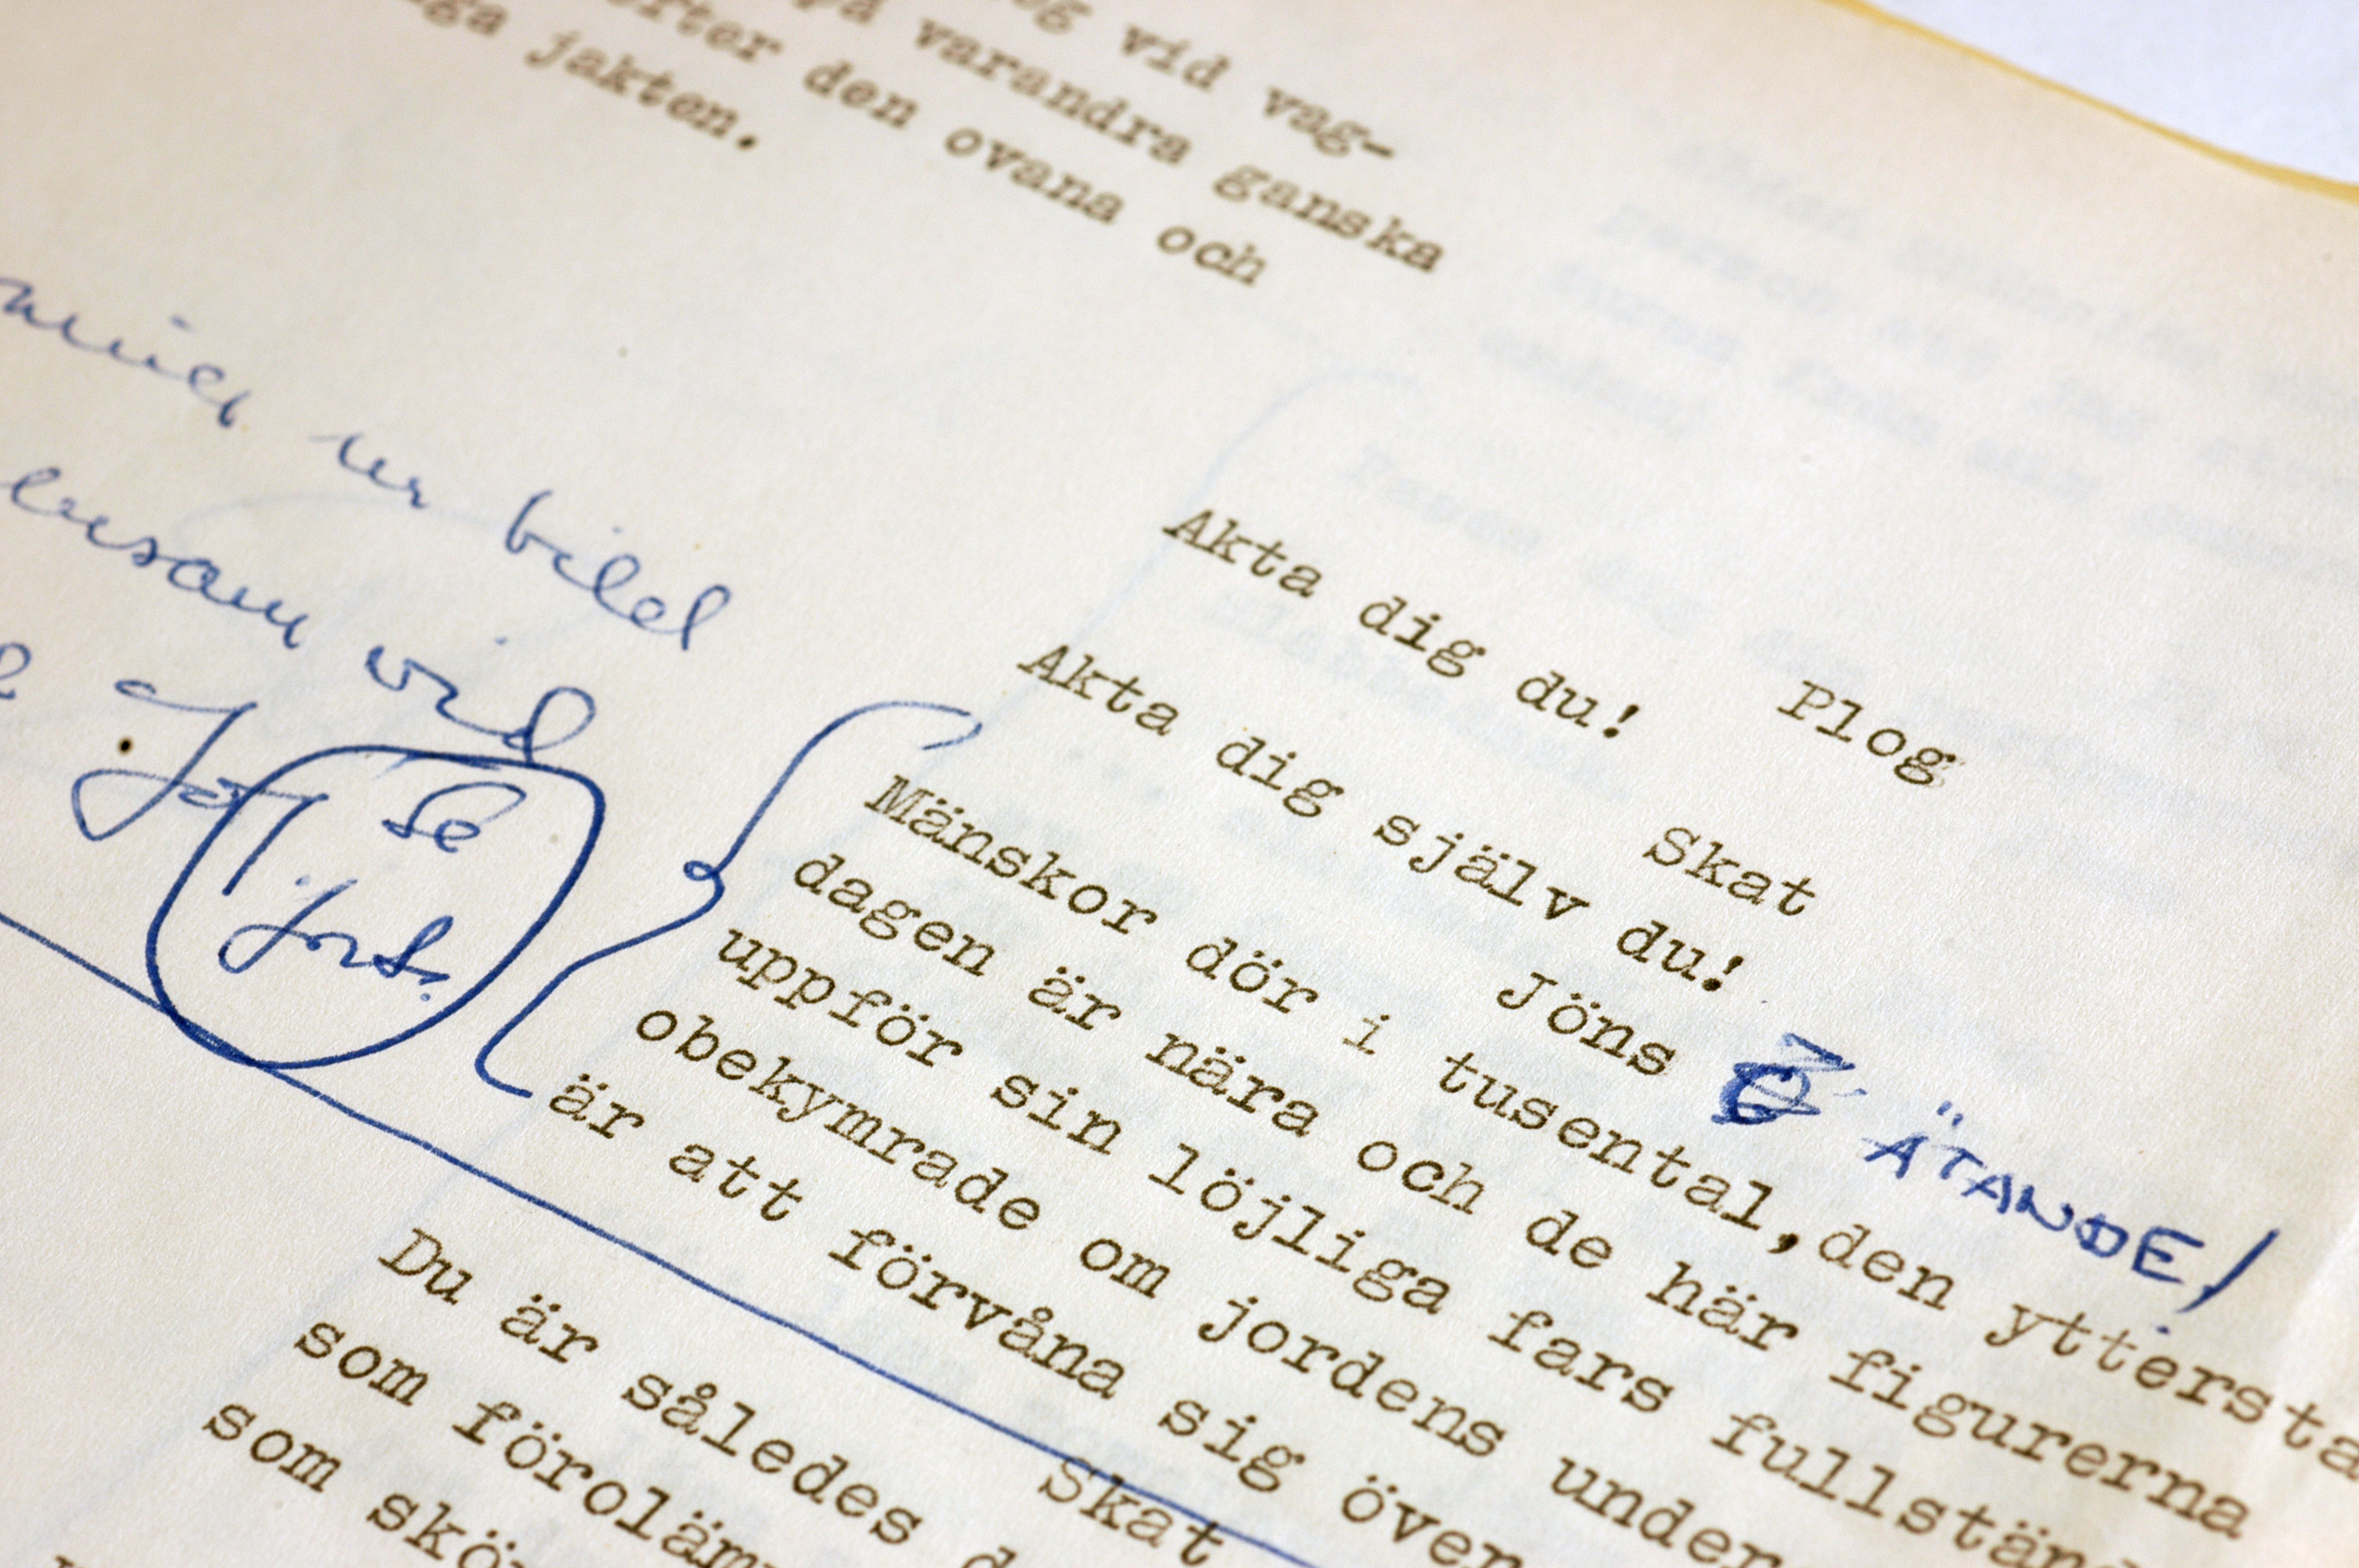 vid vag-
varandra ganska
efter den ovana och
jakten.
ur bild
ensam vid
Jöns
se
Plog
Akta dig du!
Skat
Akta dig själv du!
Jöns ÄTANDE!
Mänskor dör i tusental, den yttersta
dagen är nära och de här figurerna
uppför sin löjliga fars fullständ
obekymrade om jordens under
är att förvåna sig över
Skat
Du är således d
som föroläm
som skö